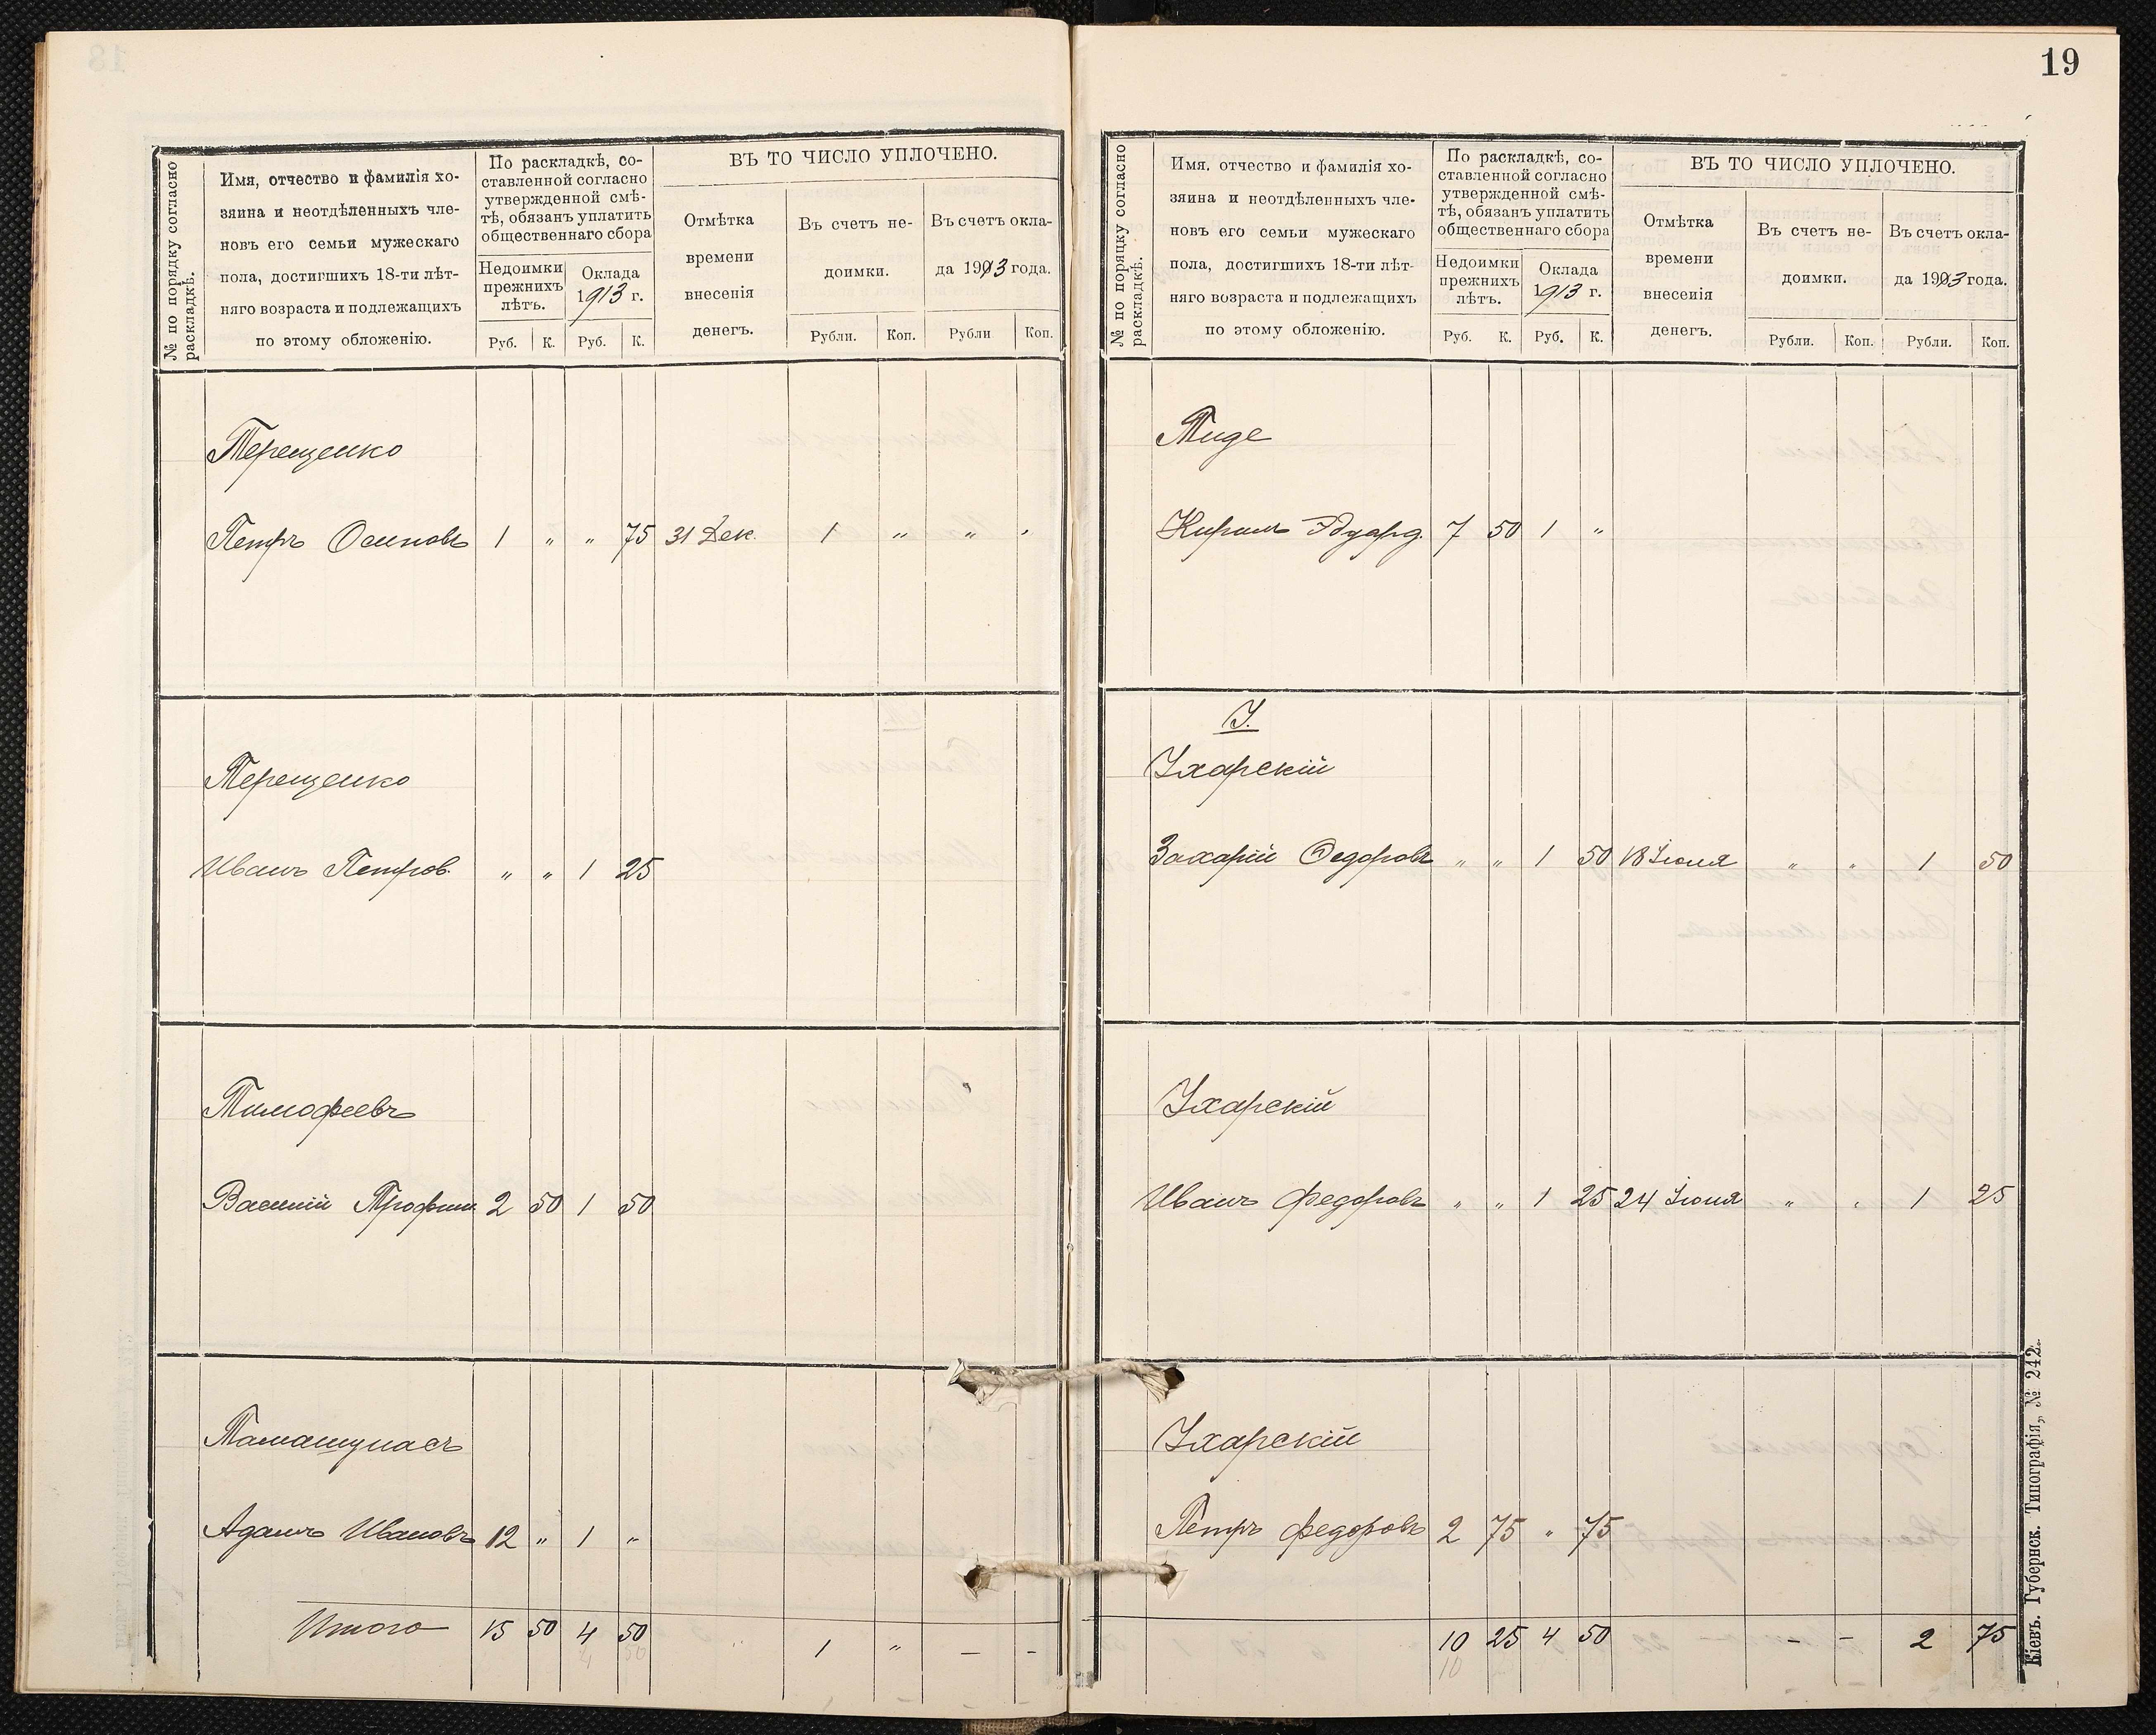 ВЪ ТО ЧИСЛО УПЛОЧЕНО.
№ по порядку согласно
раскладкѣ.
Имя, отчество и фамилія хо-
зяина и неотдѣленныхъ чле-
новъ его семьи мужескаго
пола, достигшихъ 18-ти лѣт-
няго возраста и подлежащихъ
по этому обложенію.
По раскладкѣ, со-
ставленной согласно
утвержденной смѣ-
тѣ, обязанъ уплатить
общественнаго сбора
Недоимки
прежнихъ
лѣтъ.
Оклада
1913 г.
Руб. К. Руб. К.
Отмѣтка
времени
внесенія
денегъ.
Въ счетъ не-
доимки.
Въ счетъ окла-
да 1913 года.
Рубли. Коп. Рубли Коп.
Терещенко
Петръ Осиповъ 1 " " 75 31 Дек. 1 " " "
Терещенко
Иванъ Петров. " " 1 25
Тимофеевъ
Василій Трофим. 2 50 1 50
Тамашунасъ
Адамъ Ивановъ 12 " 1 "
Итого 15 50 4 50 1 " — -
19
ВЪ ТО ЧИСЛО УПЛОЧЕНО.
№ по порядку согласно
раскладкѣ.
Имя, отчество и фамилія хо-
зяина и неотдѣленныхъ чле-
новъ его семьи мужескаго
пола, достигшихъ 18-ти лѣт-
няго возраста и подлежащихъ
по этому обложенію.
По раскладкѣ, со-
ставленной согласно
утвержденной смѣ-
тѣ, обязанъ уплатить
общественнаго сбора
Недоимки
прежнихъ
лѣтъ.
Оклада
1913 г.
Руб. К. Руб. К.
Отмѣтка
времени
внесенія
денегъ.
Въ счетъ не-
доимки.
Въ счетъ окла-
да 1913 года.
Рубли. Коп. Рубли. Коп.
Тиде
Кирилъ Эдуард. 7 50 1 "
У.
Ухарскій
Захарій Ѳедоровъ " " 1 50 18 Іюля " " 1 50
Ухарскій
Иванъ Федоровъ " " 1 25 24 Іюня " " 1 25
Ухарскій
Петръ Федоровъ 2 75 " 75
10 25 4 50 - - 2 75
10
Кіевъ. Губернск. Типографія, № 242.